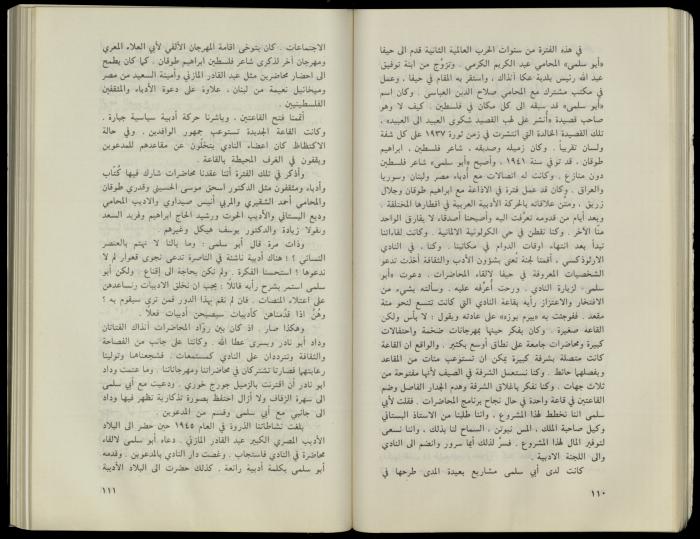 في هذه الفترة من سنوات الحرب العالمية الثانية قدم الى حيفا
«أبو سلمى» المحامي عبد الكريم الكرمي . وتزوّج من ابنة توفيق
عبد الله رئيس بلدية عكا آنذاك ، واستقر به المقام في حيفا ، وعمل
في مكتب مشترك مع المحامي صلاح الدين العباسي . وكان اسم
«أبو سلمى» قد سبقه الى كل مكان في فلسطين . كيف لا وهو
صاحب قصيدة «أنشر على لهب القصيد شكوى العبيد الى العبيد» ،
تلك القصيدة الخالدة التي انتشرت في زمن ثورة ١٩٣٧ على كل شفة
ولسان تقريباً . وكان زميله وصديقه ، شاعر فلسطين ، ابراهيم
طوقان ، قد توفي سنة ١٩٤١ ، وأصبح «أبو سلمى» شاعر فلسطين
دون منازع . وكانت له اتصالات مع أدباء مصر ولبنان وسوريا
والعراق . وكان قد عمل فترة في الاذاعة مع ابراهيم طوقان وجلال
زريق ، ومتّن علاقاته بالحركة الأدبية العربية في اقطارها المختلفة .
وبعد أيام من قدومه تعرّفت اليه وأصبحنا أصدقاء لا يفارق الواحد
منّا الآخر . وكنا نقطن في حي الكولونية الالمانية . وكانت لقاءاتنا
تبدأ بعد انتهاء اوقات الدوام في مكاتبنا . وكنا ، في النادي
الارثوذكسي ، أقمنا لجنة تُعنى بشؤون الأدب والثقافة أخذت تدعو
الشخصيات المعروفة في حيفا لالقاء المحاضرات . دعوت «أبو
سلمى» لزيارة النادي . ورحت أعرّفه عليه . وسألته بشيء من
الافتخار والاعتزاز رأيه بقاعة النادي التي كانت تتسع لنحو مئة
مقعد . ففوجئت به «يبرم بوزه» على عادته ويقول : لا بأس ولكن
القاعة صغيرة . وكان يفكر حينها بمهرجانات ضخمة واحتفالات
كبيرة ومحاضرات جامعة على نطاق أوسع بكثير . والواقع ان القاعة
كانت متصلة بشرفة كبيرة يمكن ان تستوعب مئات من المقاعد
ويفصلهما حائط . وكنا نستعمل الشرفة في الصيف لأنها مفتوحة من
ثلاث جهات . وكنا نفكر باغلاق الشرفة وهدم الجدار الفاصل وضم
القاعتين في قاعة واحدة في حال نجاح برنامج المحاضرات . فقلت لأبي
سلمى اننا نخطط لهذا المشروع ، واننا طلبنا من الاستاذ البستاني
وكيل صاحبة الملك ، المس نيوتن ، السماح لنا بذلك ، واننا نسعى
لتوفير المال لهذا المشروع . فسرّ لذلك أيما سرور وانضم الى النادي
والى اللجنة الادبية .
كانت لدى أبي سلمى مشاريع بعيدة المدى طرحها في
١١٠
الاجتماعات . كان يتوخى اقامة المهرجان الألفي لأبي العلاء المعري
ومهرجان آخر لذكرى شاعر فلسطين ابراهيم طوقان . كما كان يطمح
الى احضار محاضرين مثل عبد القادر المازني وأمينة السعيد من مصر
وميخائيل نعيمة من لبنان ، علاوة على دعوة الأدباء والمثقفين
الفلسطينيين .
أتممنا فتح القاعتين ، وباشرنا حركة أدبية سياسية جبارة .
وكانت القاعة الجديدة تستوعب جمهور الوافدين . وفي حالة
الاكتظاظ كان اعضاء النادي يتخلّون عن مقاعدهم للمدعوين
ويقفون في الغرف المحيطة بالقاعة .
وأذكر في تلك الفترة أننا عقدنا محاضرات شارك فيها كُتّاب
وأدباء ومثقفون مثل الدكتور اسحق موسى الحسيني وقدري طوقان
والمحامي أحمد الشقيري والمربي أنيس صيداوي والاديب المحامي
وديع البستاني والأديب الحوت ورشيد الحاج ابراهيم وفريد السعد
ونقولا زيادة والدكتور يوسف هيكل وغيرهم .
وذات مرة قال أبو سلمى : وما بالنا لا نهتم بالعنصر
النسائي ؟! هناك أدبية ناشئة في الناصرة تدعى نجوى قعوار لم لا
ندعوها ؟ استحسنا الفكرة . ولم نكن بحاجة الى إقناع . ولكن أبو
سلمى استمر بشرح رأيه قائلاً : يجب ان نخلق الاديبات ونساعدهن
على اعتلاء المنصات . فان لم نقم بهذا الدور فمن ترى سيقوم به ؟
وهُنّ اذا قدّمناهن كأديبات سيصبحن أديبات فعلاً .
وهكذا صار . اذ كان بين روّاد المحاضرات آنذاك الفتاتان
وداد أبو نادر ويسرى عطا الله . وكانتا على جانب من الفصاحة
والثقافة وتترددان على النادي كمستمعات . فشجعناهما وتولينا
رعايتهما فصارتا تشتركان في محاضراتنا ومهرجاناتنا . وما عتمت وداد
ابو نادر أن اقترنت بالزميل جورج خوري . ودعيت مع أبي سلمى
الى سهرة الزفاف ولا أزال احتفظ بصورة تذكارية نظهر فيها وداد
الى جانبي مع أبي سلمى وقسم من المدعوين .
بلغت نشاطاتنا الذروة في العام ١٩٤٥ حين حضر الى البلاد
الأديب المصري الكبير عبد القادر المازني . دعاه أبو سلمى لالقاء
محاضرة في النادي فاستجاب . وغصت دار النادي بالمدعوين . وقدمه
أبو سلمى بكلمة أدبية رائعة . كذلك حضرت الى البلاد الأديبة
١١١